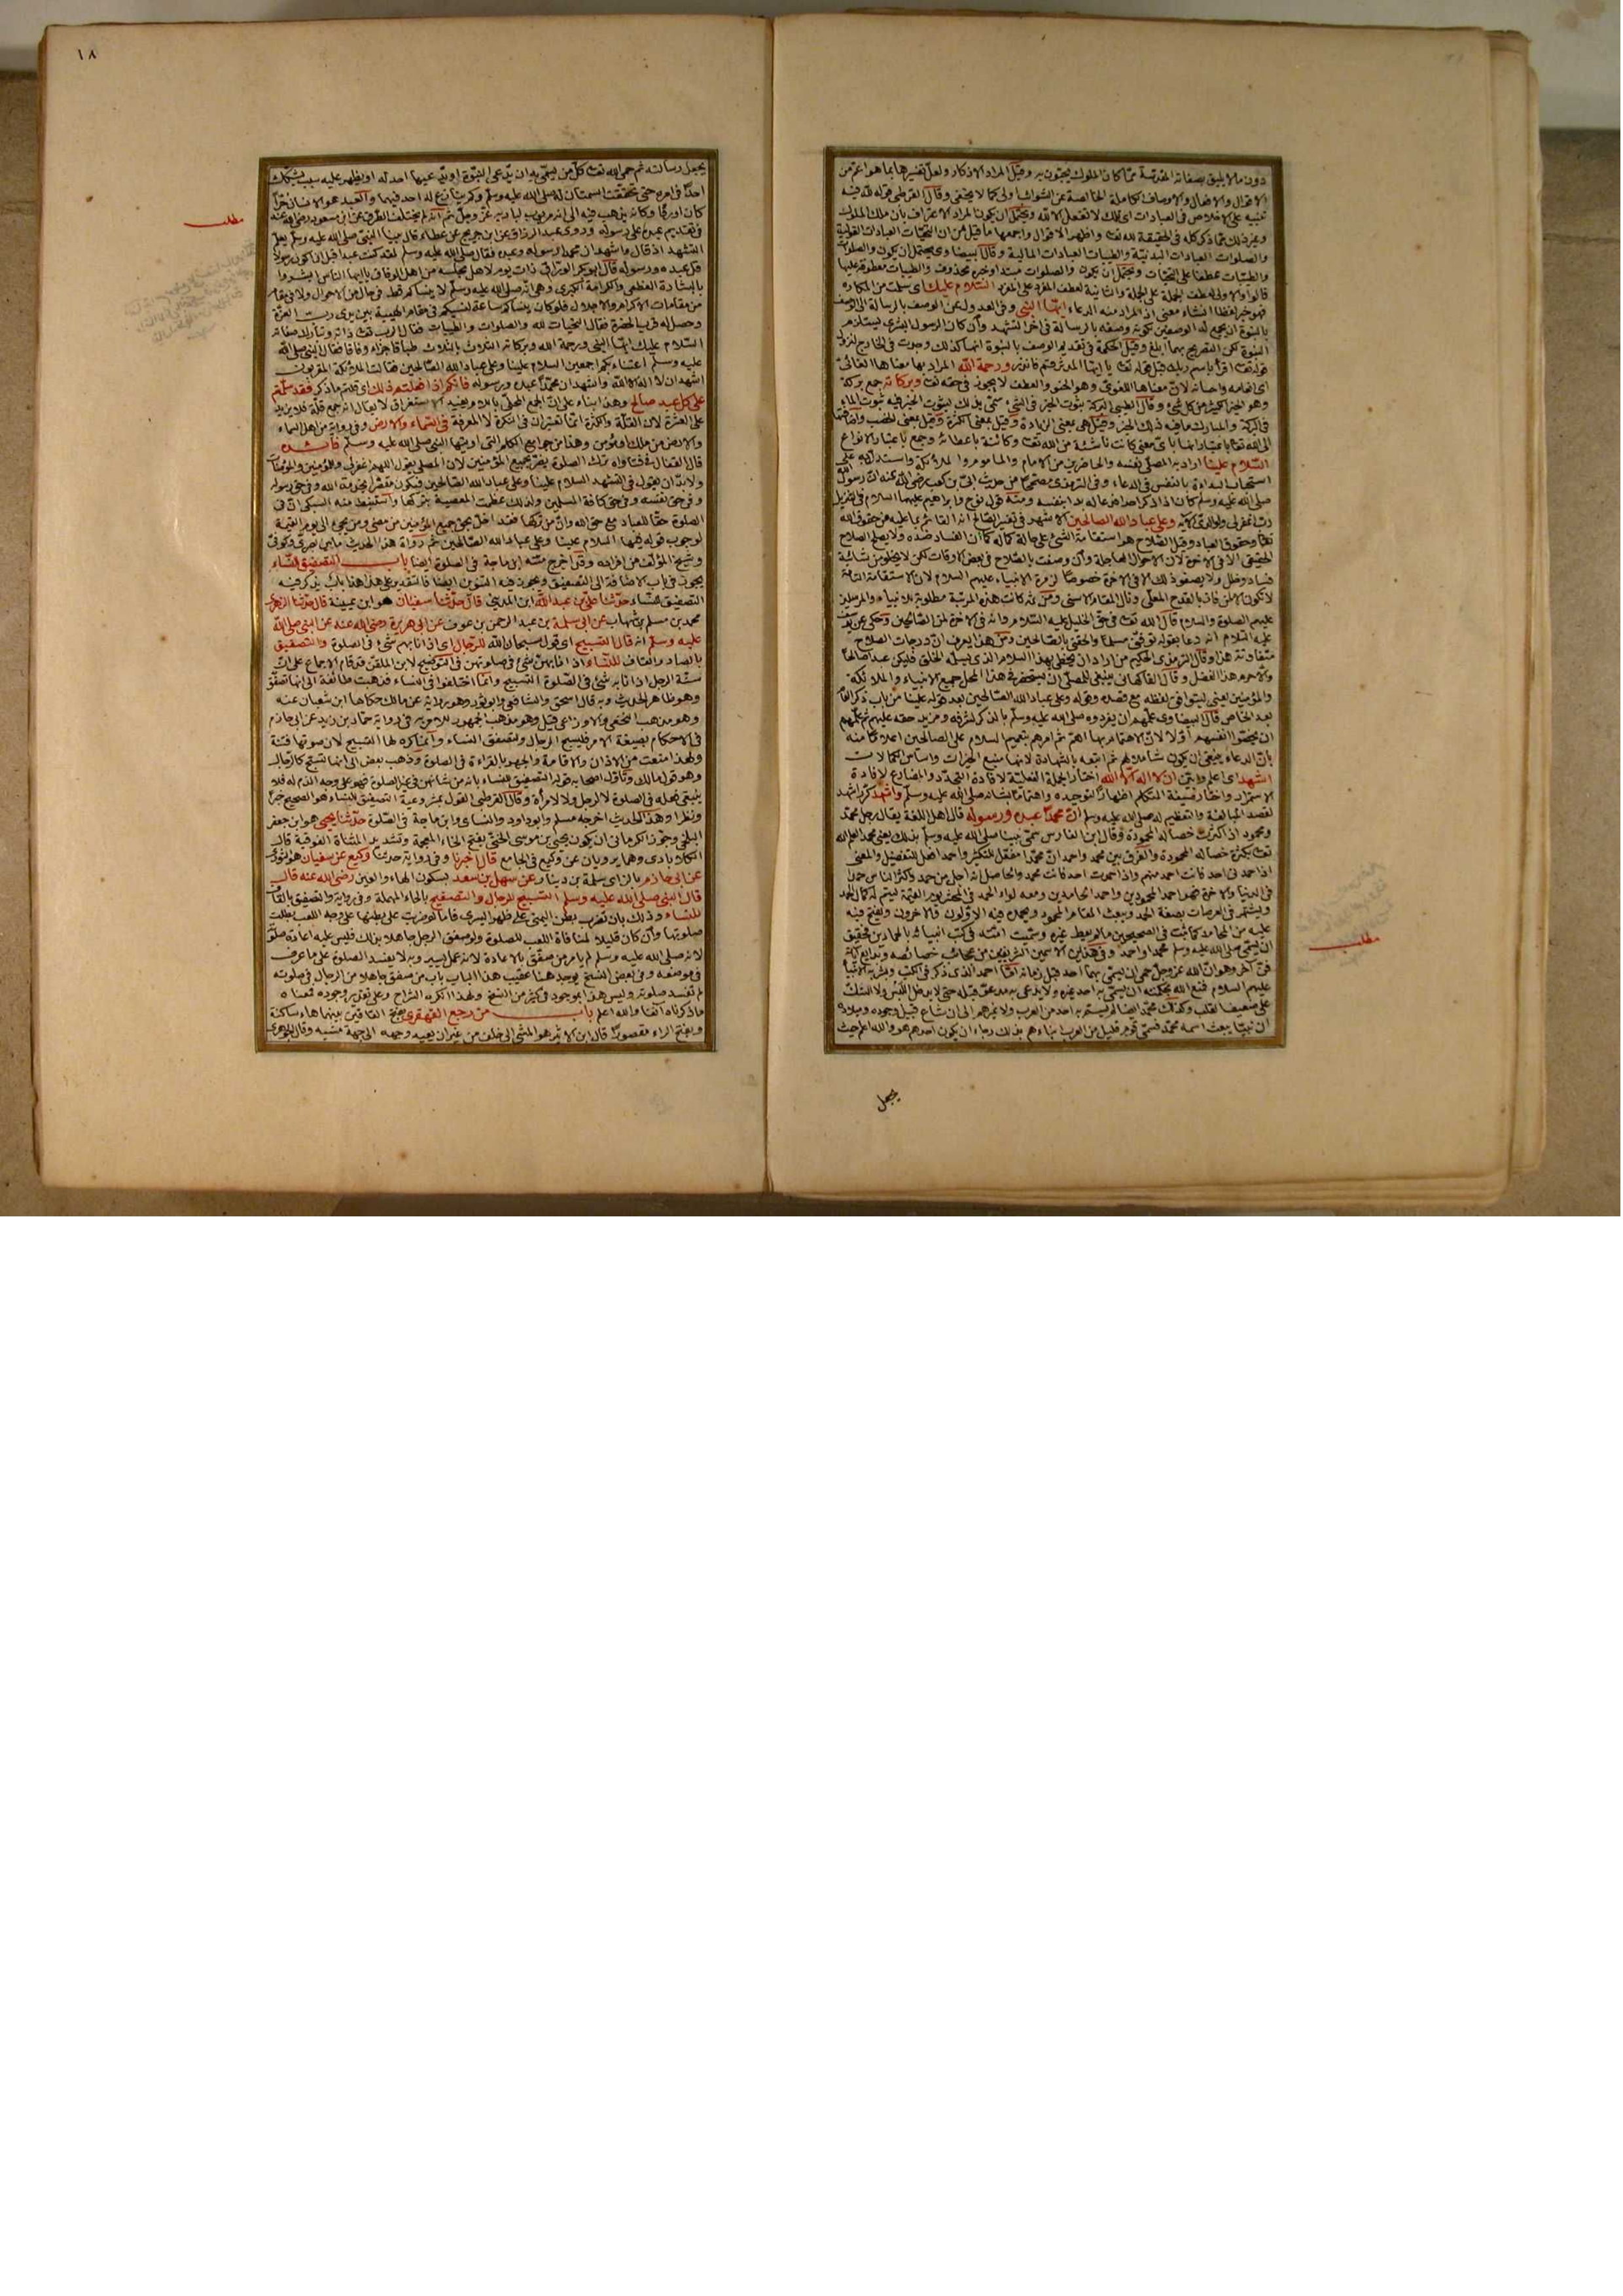 دون ما لا يليق بصفاته المقدسة مما كان الملوك يحيون به وقيل المراد الاذكار ولعل تفسيرها بما هو اعم من
الاقوال والافعال والاوصاف الكاملة الخالصة عن الشوائب اولى كما لا يخفى وقال القرطبي قوله لله فيه
تنبيه على الاخلاص في العبادات اي تلك لا تفعل الا لله ويحتمل ان يكون المراد الاعتراف بان ملك الملوك
وغير ذلك مما ذكر كله في الحقيقة لله تعالى واظهر الاقوال واجمعها ما قيل من ان التحيات العبادات القولية
والصلوات العبادات البدنية والطيبات العبادات المالية وقال البيضاوي يحتمل ان يكون والصلوات
والطيبات عطفا على التحيات ويحتمل ان يكون والصلوات مبتدا وخبره محذوف والطيبات معطوفة عليها
قالوا والاولى لعطف الجملة على الجملة والثانية لعطف المفرد على المفرد السلام عليك اي سلمت من المكاره
فهو خبر لفظا انشاء معنى اذ المراد منه الدعاء ايها النبي وفي العدول عن الوصف بالرسالة الى الوصف
بالنبوة ان يجمع له الوصفين لكونه وصفه بالرسالة في اخر التشهد وان كان الرسول البشري يستلزم
النبوة لكن التصريح بهما ابلغ وقيل الحكمة في تقديم الوصف بالنبوة انها كذلك وجدت في الخارج لنزول
قوله تعالى اقرأ باسم ربك قبل قوله تعالى يا ايها المدثر قم فانذر ورحمة الله المراد بها معناها الغائي
اي انعامه واحسانه لان معناها اللغوي وهو الحنو والعطف لا يجوز في حقه تعالى وبركاته جمع بركة
وهو الخير الكثير من كل شيء وقال الطيبي البركة ثبوت الخير في الشيء سمي بذلك لثبوت الخير فيه ثبوت الماء
في البركة والمبارك ما فيه ذلك الخير وقيل هي بمعنى الزيادة وقيل بمعنى الكثرة
السلام علينا اراد به المصلي نفسه والحاضرين من الامام والماموم والملائكة واستدل به على
استحباب البداءة بالنفس في الدعاء وفي الترمذي مصححا من حديث ابي بن كعب رضي الله عنه ان رسول
صلى الله عليه وسلم كان اذا ذكر احدا فدعا له بدا بنفسه ومنه قول نوح وابراهيم عليهما السلام
رب اغفر لي ولوالدي الاية وعلى عباد الله الصالحين الاشهر في تفسير الصالح انه القائم بما عليه من حقوق الله
تعالى وحقوق العباد وقيل الصلاح هو استقامة الشيء على حالة كماله كما ان الفساد ضده ولا يصلح الصلاح
الحقيقي الا في الاخرة لان الاحوال العاجلة وان وصفت بالصلاح في بعض الاوقات لكن لا يخلو من شائبة
فساد وخلل ولا يصفو ذلك الا في الاخرة خصوصا لزمرة الانبياء عليهم السلام لان الاستقامة التامة
لا تكون الا لمن فاز بالقدح المعلى ونال المقام الاسنى ومن ثم كانت هذه المرتبة مطلوبة للانبياء والمرسلين
عليهم الصلوة والسلام قال الله تعالى في حق الخليل عليه السلام وانه في الاخرة لمن الصالحين وحكى عن يوسف
عليه السلام انه دعا بقوله توفني مسلما والحقني بالصالحين ومن هذا يعرف ان درجات الصلاح
متفاوتة هذا وقال الترمذي الحكيم من اراد ان يحظى بهذا السلام الذي يسلمه الخلق فليكن عبدا صالحا
والا حرم هذا الفضل وقال الفاكهاني ينبغي للمصلي ان يستحضر في هذا المحل جميع الانبياء والملائكة
والمؤمنين يعني ليتوافق لفظه مع قصده وقوله وعلى عباد الله الصالحين بعد قوله علينا من باب ذكر العام
بعد الخاص قال البيضاوي علمهم ان يفردوه صلى الله عليه وسلم بالذكر لشرفه ومزيد حقه عليهم ثم علمهم
ان يخصوا انفسهم اولا لان الاهتمام بها اهم ثم امرهم بتعميم السلام على الصالحين اعلاما منه
بان الدعاء ينبغي ان يكون شاملا لهم ثم اتبعه بالشهادة لانها منبع الخيرات واساس الكمالات
اشهد اي اعلم وابين ان لا اله الا الله اختار الجملة الفعلية لافادة التجدد والمضارع لافادة
الاستمرار واختار صيغة المتكلم اظهارا لتوحيده واهتماما بشانه صلى الله عليه وسلم واشهد كرر اشهد
لقصد المبالغة والتعظيم له صلى الله عليه وسلم ان محمدا عبده ورسوله قال اهل اللغة يقال رجل محمد
ومحمود اذا كثرت خصاله المحمودة وقال ابن الفارس سمي نبينا صلى الله عليه وسلم بذلك يعني محمد العلم الله
تعالى بكثرة خصاله المحمودة والفرق بين محمد واحمد ان محمدا مفعل للتكثير واحمد افعل للتفضيل والمعنى
في الدنيا والاخرة فهو احمد المحمودين واحمد الحامدين ومعه لواء الحمد في المحشر يوم القيمة ليتم له كمال الحمد
ويشتهر في العرصات بصفة الحمد ويبعث المقام المحمود ويحمده فيه الاولون والاخرون ويفتح فيه
عليه من المحامد كما ثبت في الصحيحين ما لم يعط غيره وسميت امته في كتب انبيائه بالحمادين فحقيق
ان يسمى صلى الله عليه وسلم محمدا واحمد وفي هذين الاسمين الشريفين من عجائب خصائصه وبدائع اياته
فن اخر وهو ان الله عز وجل حمى ان يسمى بهما احد قبل زمانه اما احمد الذي ذكر في الكتب وبشر به الانبياء
عليهم السلام فمنع الله بحكمته ان يسمى به احد غيره ولا يدعى به مدعو قبله حتى لا يدخل اللبس ولا الشك
على ضعيف القلب وكذلك محمد ايضا لم يسم به احد من العرب ولا غيرهم الى ان شاع قبيل وجوده وميلاده
ان نبيا يبعث اسمه محمد فسمى قوم قليل من العرب ابناءهم بذلك رجاء ان يكون احدهم هو والله اعلم حيث
يجعل
مطلب
١٨
يجعل رسالته ثم حمى الله تعالى كل من تسمى به ان يدعي النبوة او يدعيها احد له او يظهر عليه سبب يشكك
احدا في امره حتى تحققت السمتان له صلى الله عليه وسلم ولم ينازع له احد فيهما
مطلب
في تقديم عبده على رسوله وروى عبد الرزاق عن ابن جريج عن عطاء قال بينا النبي صلى الله عليه وسلم يعلم
التشهد اذ قال رجل واشهد ان محمدا رسوله وعبده فقال صلى الله عليه وسلم لقد كنت عبدا قبل ان اكون رسولا
قل عبده ورسوله
بالبشارة العظمى والكرامة الكبرى وهي انه صلى الله عليه وسلم لا ينساكم قط في حال من الاحوال ولا في مقام
من مقامات الاكرام والاجلال فلو كان ينساكم ساعة لنسيكم في مقام الهيبة بين يدي رب العزة
السلام عليك ايها النبي ورحمة الله وبركاته الثلاث بالثلاث طباقا جزاء وفاقا فقال النبي صلى الله
عليه وسلم اعتناء بكم اجمعين السلام علينا وعلى عباد الله الصالحين فقالت الملائكة المقربون
اشهد ان لا اله الا الله واشهد ان محمدا عبده ورسوله فانكم اذا فعلتم ذلك اي قلتم ما ذكر فقد سلمتم
على كل عبد صالح وهذا بناء على ان الجمع المحلى باللام يفيد الاستغراق لا يقال انه جمع قلة فلا يزيد
على العشرة لان القلة والكثرة انما تعتبران في النكرة لا المعرفة في السماء والارض وفي رواية من اهل السماء
والارض من ملك او مؤمن وهذا من جوامع الكلم التي اوتيها النبي صلى الله عليه وسلم فائدة
قال القفال في فتاواه ترك الصلوة يضر بجميع المؤمنين لان المصلي يقول اللهم اغفر لي وللمؤمنين والمؤمنات
ولا بد ان يقول في التشهد السلام علينا وعلى عباد الله الصالحين فيكون مقصرا بخدمة الله وفي حق رسوله
وفي حق نفسه وفي حق كافة المسلمين ولذلك عظمت المعصية بتركها واستنبط منه السبكي ان في
الصلوة حقا للعباد مع حق الله وان من تركها فقد اخل بحق جميع المؤمنين من مضى ومن يجيء الى يوم القيمة
لوجوب قوله فيها السلام علينا وعلى عباد الله الصالحين ثم رواة هذا الحديث ما بين بصري وكوفي
وشيخ المؤلف من افراده وقد اخرج متنه ابن ماجة في الصلوة ايضا باب التصفيق للنساء
يجوز في باب الاضافة الى التصفيق ويجوز فيه التنوين ايضا فالتقدير على هذا هذا باب يذكر فيه
التصفيق للنساء حدثنا علي بن عبد الله ابن المديني قال حدثنا سفيان هو ابن عيينة قال حدثنا الزهري
محمد بن مسلم بن شهاب عن ابي سلمة بن عبد الرحمن بن عوف عن ابي هريرة رضي الله عنه عن النبي صلى الله
عليه وسلم انه قال التسبيح اي قول سبحان الله للرجال اي اذا نابهم شيء في الصلوة والتصفيق
بالصاد والقاف للنساء اذا نابهن شيء في صلوتهن وفي التوضيح لابن الملقن قد قام الاجماع على ان
سنة الرجل اذا نابه شيء في الصلوة التسبيح وانما اختلفوا في النساء فذهبت طائفة الى انها تصفق
وهو ظاهر الحديث وبه قال اسحق والشافعي وابو ثور وهو رواية عن مالك حكاها ابن شعبان عنه
وهو مذهب النخعي والاوزاعي وقيل وهو مذهب الجمهور للامر به في رواية حماد بن زيد عن ابي حازم
في الاحكام بصيغة الامر فليسبح الرجال ولتصفق النساء وانما كره لها التسبيح لان صوتها فتنة
ولهذا منعت من الاذان والاقامة والجهر بالقراءة في الصلوة وذهب بعض الى انها تسبح كالرجال
وهو قول مالك وتاول اصحابه قوله التصفيق للنساء بانه من شانهن في غير الصلوة فهو على وجه الذم له فلا
ينبغي فعله في الصلوة لا لرجل ولا لامرأة وقال القرطبي القول بمشروعية التصفيق للنساء هو الصحيح خبرا
ونظرا وهذا الحديث اخرجه مسلم وابو داود والنسائي وابن ماجة في الصلوة حدثنا يحيى هو ابن جعفر
البلخي وجوز الكرماني ان يكون يحيى بن موسى الختي بفتح الخاء المعجمة وتشديد المثناة الفوقية قال
الكلاباذي وهما يرويان عن وكيع في الجامع قال اخبرنا وفي رواية حدثنا وكيع عن سفيان هو الثوري
عن ابي حازم بالزاي سلمة بن دينار عن سهل بن سعد بسكون الهاء والعين رضي الله عنه قال
قال النبي صلى الله عليه وسلم التسبيح للرجال والتصفيح بالحاء المهملة وفي رواية والتصفيق بالقاف
للنساء وذلك بان تضرب بطن اليمنى على ظهر اليسرى فاما لو ضربت على بطنها على وجه اللعب بطلت
صلوتها وان كان قليلا لمنافاة اللعب للصلوة ولو صفق الرجل جاهلا بذلك فليس عليه اعادة صلوته
لانه صلى الله عليه وسلم لم يامر من صفق بالاعادة لانه عمل يسير وبه لا تفسد الصلوة على ما عرف
في موضعه وفي بعض النسخ يوجد هنا عقيب هذا الباب باب من صفق جاهلا من الرجال في صلوته
لم تفسد صلوته وليس هذا بموجود في كثير من النسخ ولهذا انكره الشراح وعلى تقدير وجوده فمعناه
ما ذكرناه انفا والله اعلم باب من رجع القهقرى بفتح القافين بينهما هاء ساكنة
وبفتح الراء مقصورا قال ابن الاثير هو المشي الى خلف من غير ان يعيد وجهه الى جهة مشيه وقال الجوهري